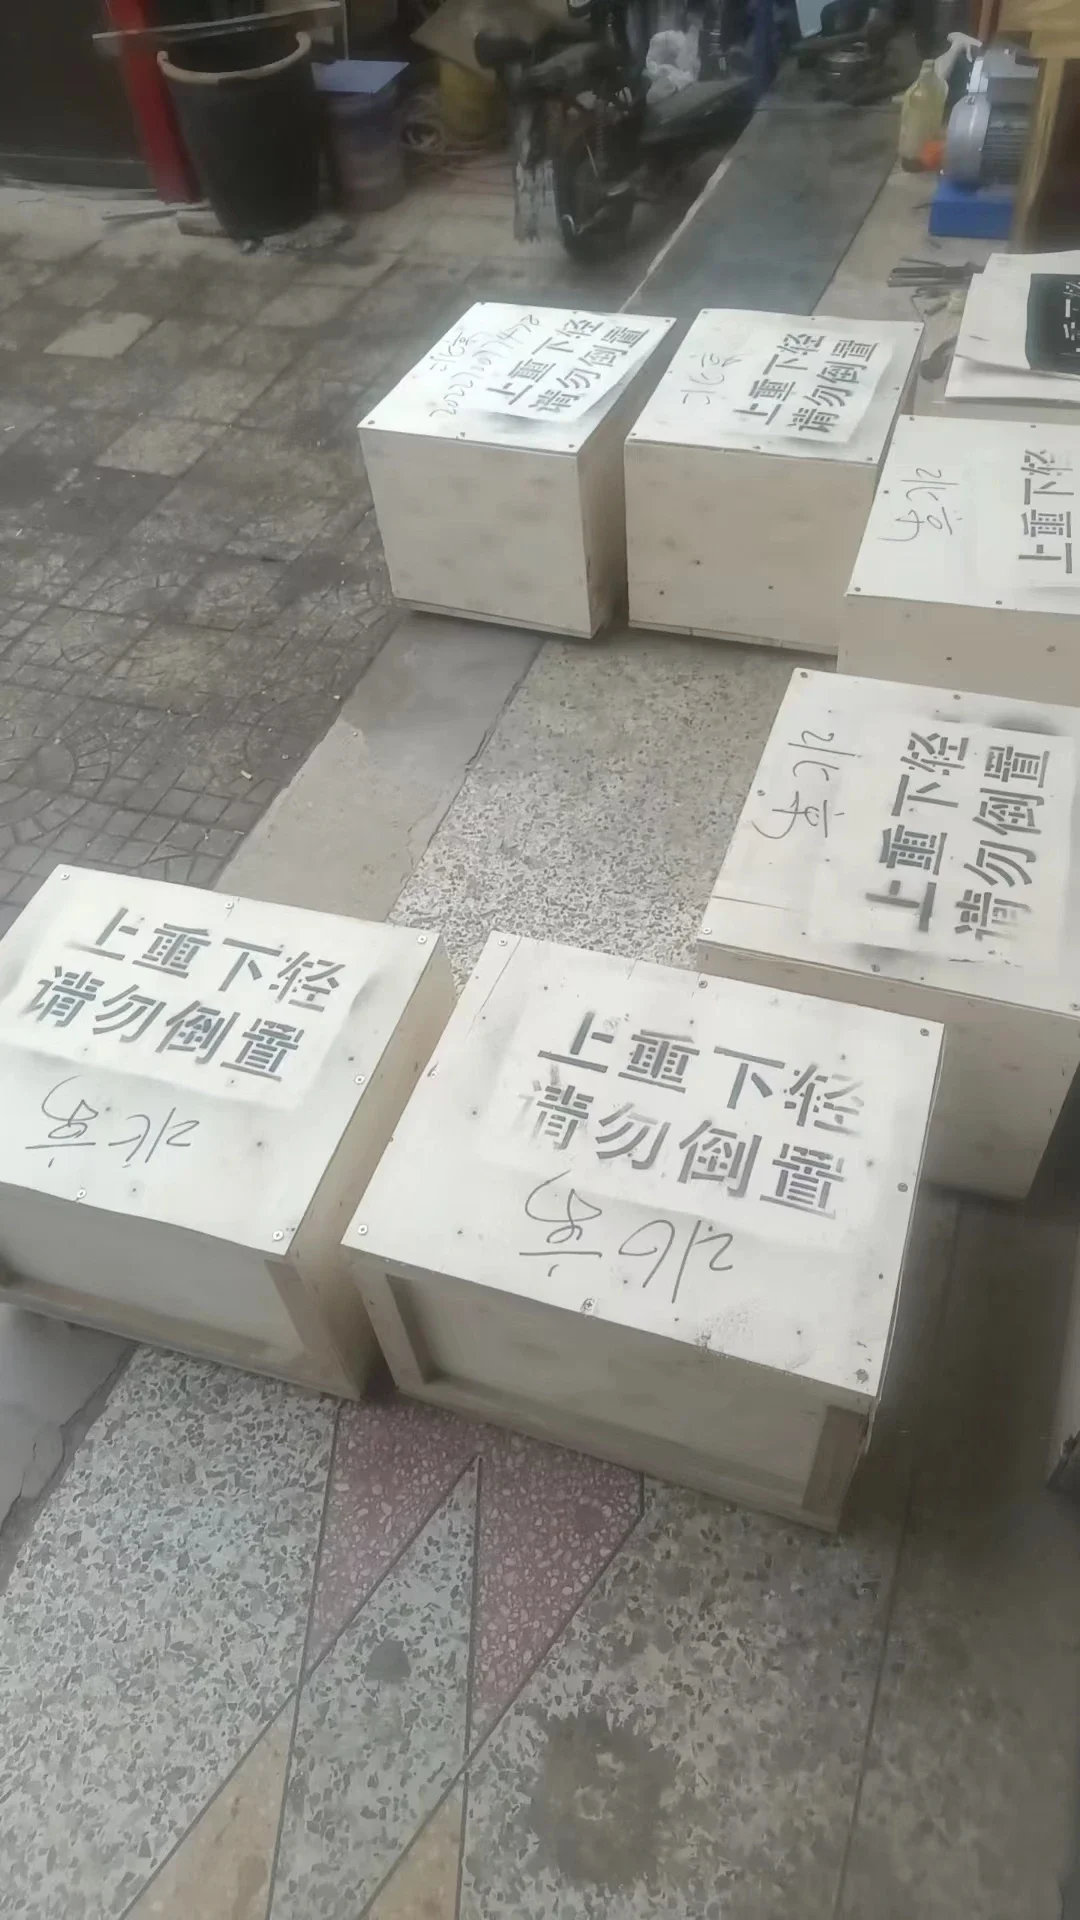 北京
20221071478
上重下轻
请勿倒置
北京
上重下轻
请勿倒置
北京
上重下轻
北京
上重下轻
请勿倒置
上重下轻
请勿倒置
北京
上重下轻
请勿倒置
北京